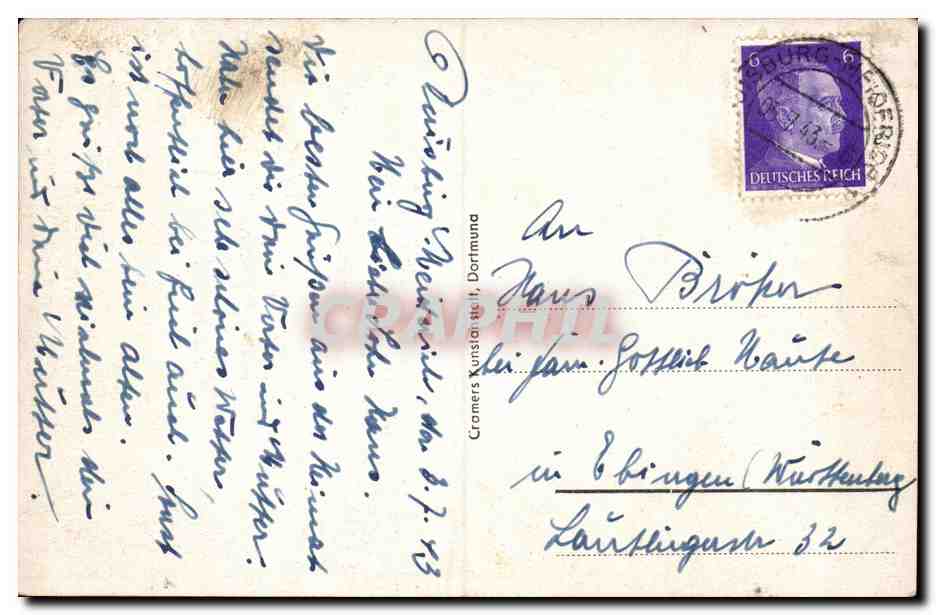 Duisburg Meiderich, den 8.7.43
Mein lieber Sohn Hans.
Die besten Grüßen aus der Heimat
sendet dir dein Vater und Mutter.
Habe hier sehr schönes Wetter,
hoffentlich bei Euch auch. Sonst
ist noch alles beim alten.
Es grüßt viel vielmals dein
Vater und deine Mutter.
Cramers Kunstanstalt, Dortmund
6 6
DEUTSCHES REICH
DUISBURG-MEIDERICH
An
Hans Bröker
bei Fam. Gottlieb
in Ebingen (Württemberg
Lautlingerstr 32
CPAPHIL